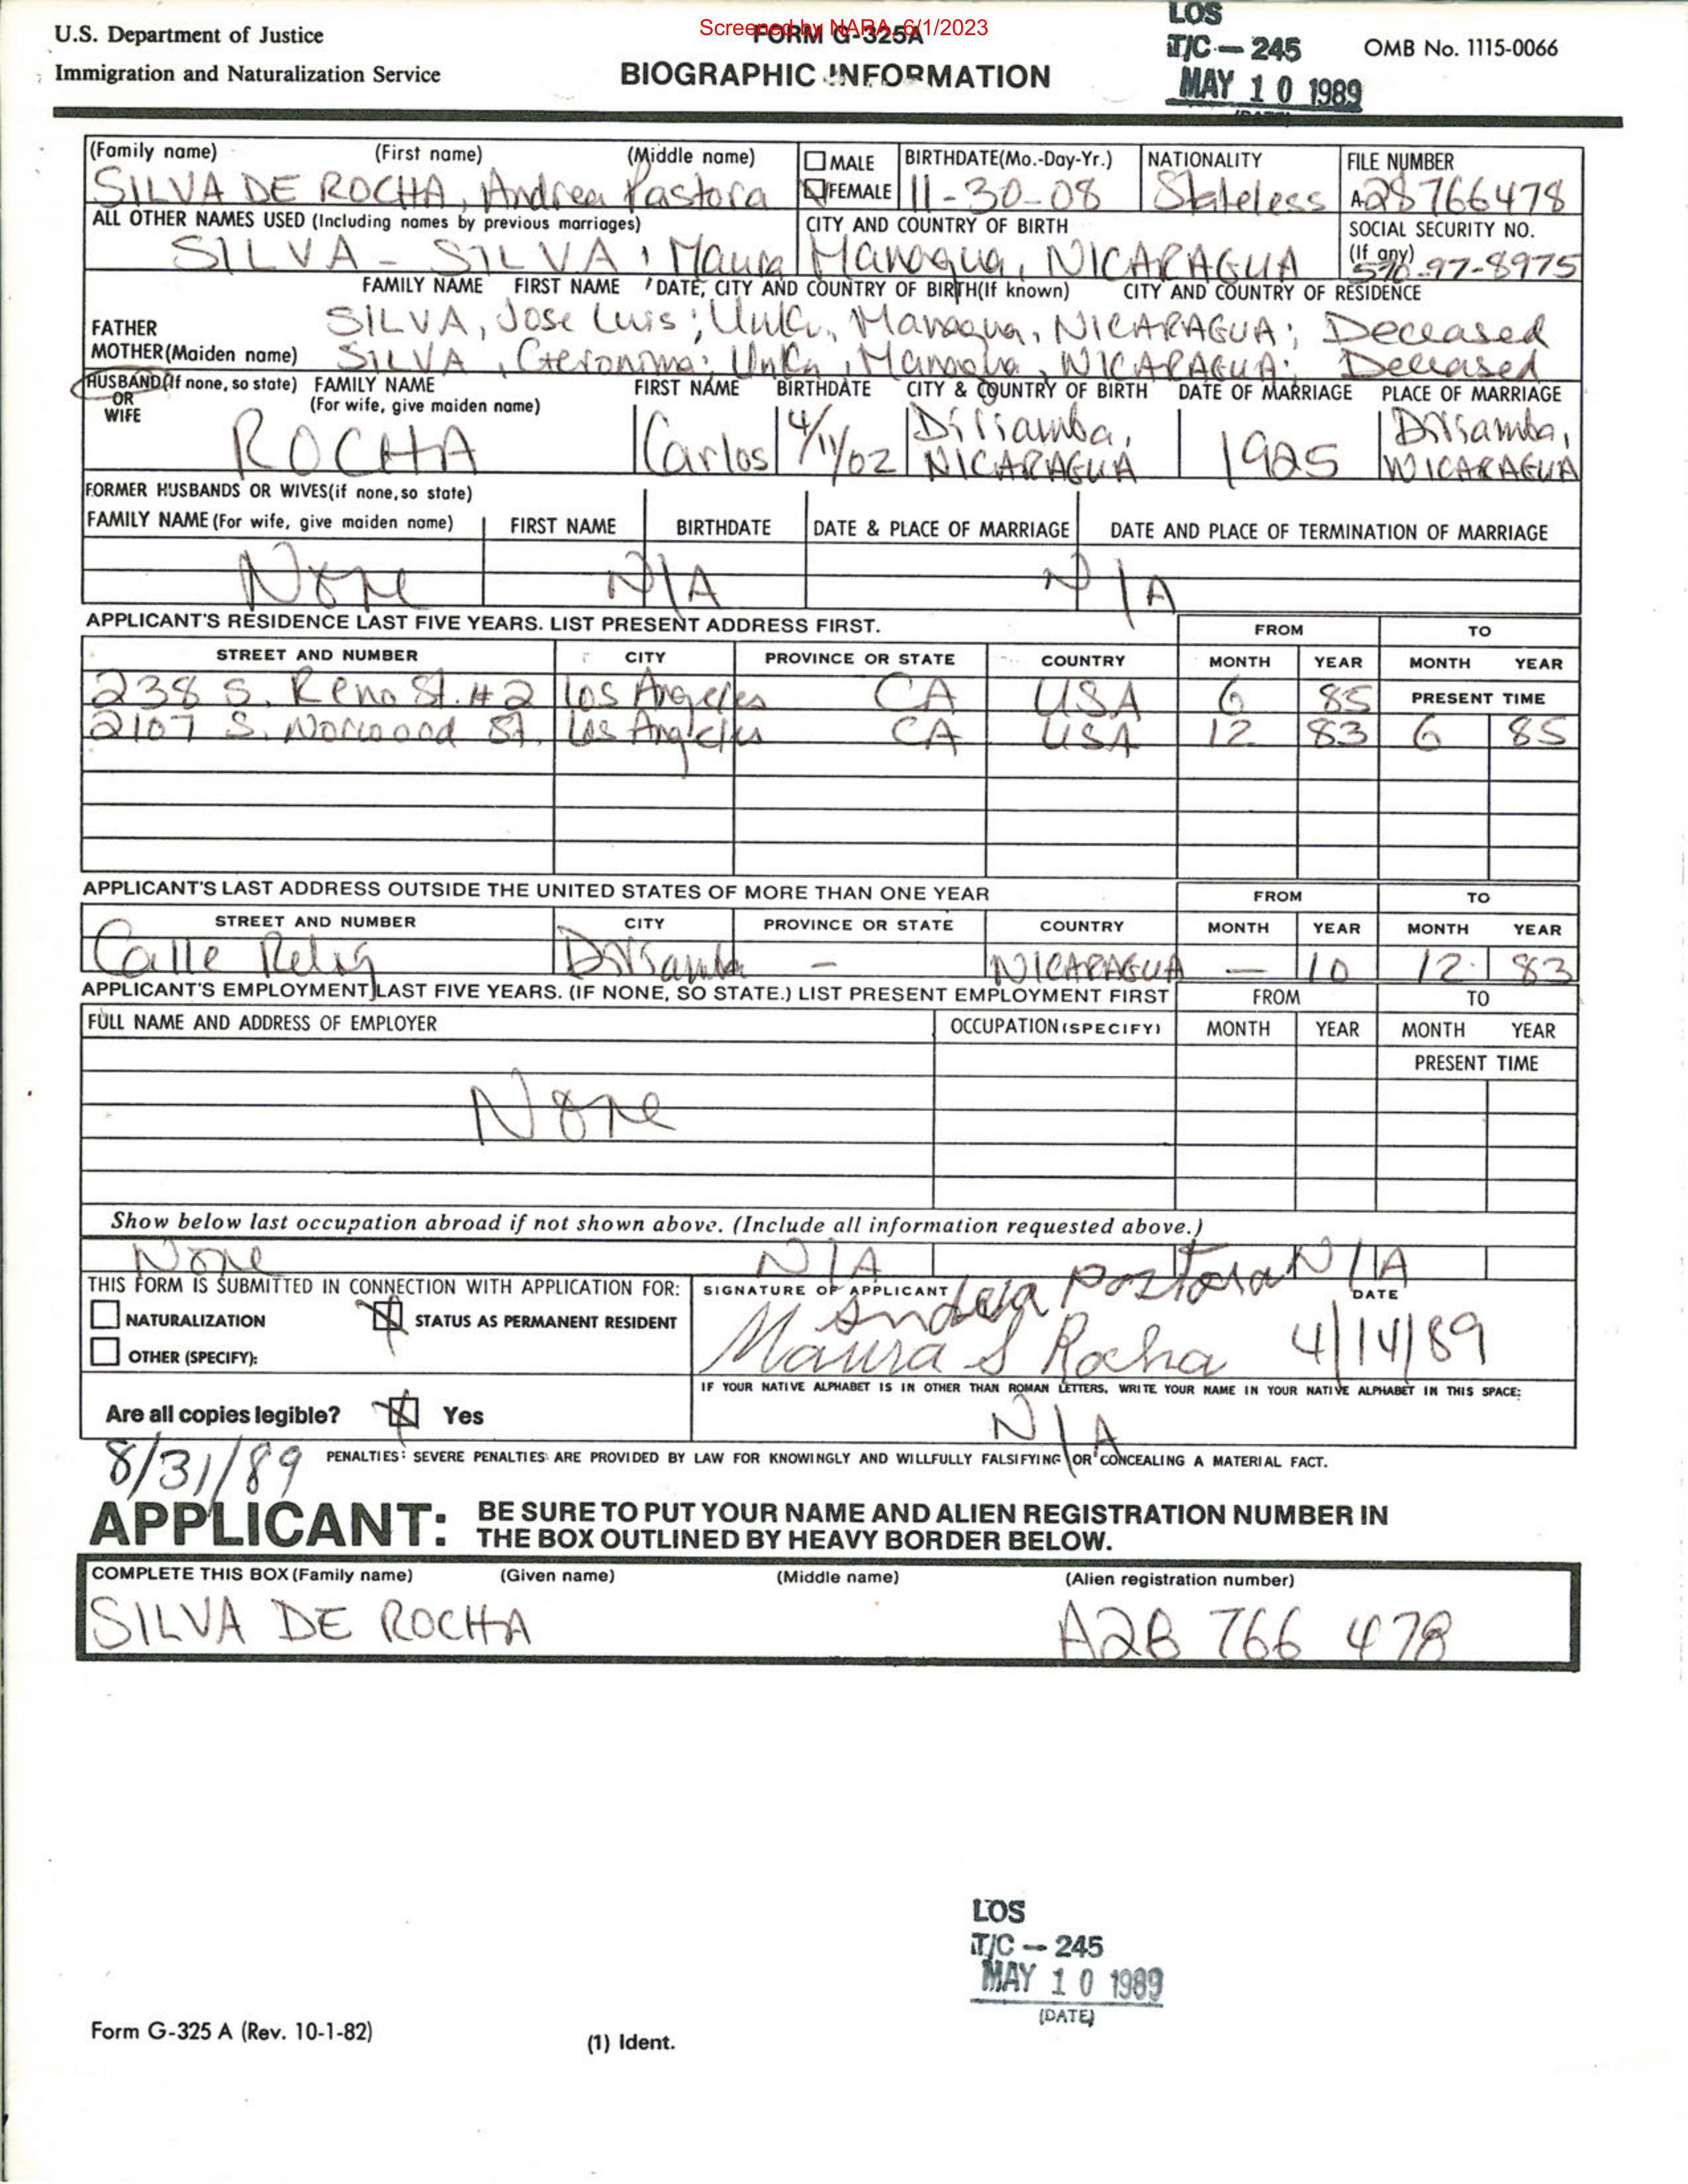 U.S. Department of Justice
Immigration and Naturalization Service
Screened by NARA, 6/1/2023
FORM G-325A
BIOGRAPHIC INFORMATION
LOS
T/C - 245
MAY 10 1989
OMB No. 1115-0066
(Family name) (First name) (Middle name)
SILVA DE ROCHA, Andrea Pastora
MALE
FEMALE
BIRTHDATE(Mo.-Day-Yr.)
11-30-08
NATIONALITY
Stateless
FILE NUMBER
A-28766478
ALL OTHER NAMES USED (Including names by previous marriages)
SILVA - SILVA, Maura
CITY AND COUNTRY OF BIRTH
Managua, NICARAGUA
SOCIAL SECURITY NO.
(If any)
570-97-8975
FAMILY NAME FIRST NAME DATE, CITY AND COUNTRY OF BIRTH(If known) CITY AND COUNTRY OF RESIDENCE
FATHER SILVA, Jose Luis; Unk., Managua, NICARAGUA; Deceased
MOTHER(Maiden name) SILVA, Geronima; Unk., Managua, NICARAGUA; Deceased
HUSBAND(If none, so state) FAMILY NAME FIRST NAME BIRTHDATE CITY & COUNTRY OF BIRTH DATE OF MARRIAGE PLACE OF MARRIAGE
OR (For wife, give maiden name)
WIFE
ROCHA Carlos 4/11/02 Diriamba, NICARAGUA 1925 Diriamba, NICARAGUA
FORMER HUSBANDS OR WIVES(if none, so state)
FAMILY NAME (For wife, give maiden name) FIRST NAME BIRTHDATE DATE & PLACE OF MARRIAGE DATE AND PLACE OF TERMINATION OF MARRIAGE
None N/A N/A
APPLICANT'S RESIDENCE LAST FIVE YEARS. LIST PRESENT ADDRESS FIRST. FROM TO
STREET AND NUMBER CITY PROVINCE OR STATE COUNTRY MONTH YEAR MONTH YEAR
238 S. Reno St. #2 Los Angeles CA USA 6 85 PRESENT TIME
2107 S. Norwood St. Los Angeles CA USA 12 83 6 85
APPLICANT'S LAST ADDRESS OUTSIDE THE UNITED STATES OF MORE THAN ONE YEAR FROM TO
STREET AND NUMBER CITY PROVINCE OR STATE COUNTRY MONTH YEAR MONTH YEAR
Calle Diriamba - NICARAGUA - 10 12 83
APPLICANT'S EMPLOYMENT LAST FIVE YEARS. (IF NONE, SO STATE.) LIST PRESENT EMPLOYMENT FIRST FROM TO
FULL NAME AND ADDRESS OF EMPLOYER OCCUPATION (SPECIFY) MONTH YEAR MONTH YEAR
PRESENT TIME
None
Show below last occupation abroad if not shown above. (Include all information requested above.)
None N/A N/A
THIS FORM IS SUBMITTED IN CONNECTION WITH APPLICATION FOR:
NATURALIZATION STATUS AS PERMANENT RESIDENT
OTHER (SPECIFY):
SIGNATURE OF APPLICANT DATE
Andrea Pastora
Maura S Rocha 4/14/89
IF YOUR NATIVE ALPHABET IS IN OTHER THAN ROMAN LETTERS, WRITE YOUR NAME IN YOUR NATIVE ALPHABET IN THIS SPACE:
N/A
Are all copies legible? Yes
8/31/89
PENALTIES: SEVERE PENALTIES ARE PROVIDED BY LAW FOR KNOWINGLY AND WILLFULLY FALSIFYING OR CONCEALING A MATERIAL FACT.
APPLICANT: BE SURE TO PUT YOUR NAME AND ALIEN REGISTRATION NUMBER IN
THE BOX OUTLINED BY HEAVY BORDER BELOW.
COMPLETE THIS BOX (Family name) (Given name) (Middle name) (Alien registration number)
SILVA DE ROCHA A28 766 478
LOS
T/C - 245
MAY 10 1989
(DATE)
Form G-325 A (Rev. 10-1-82)
(1) Ident.